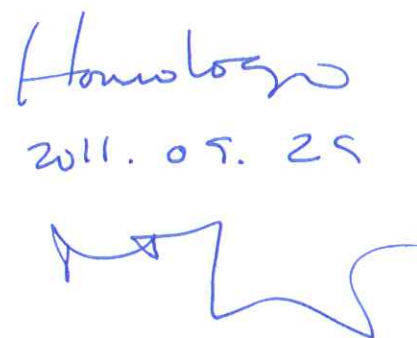 Homologo
2011. 09. 29